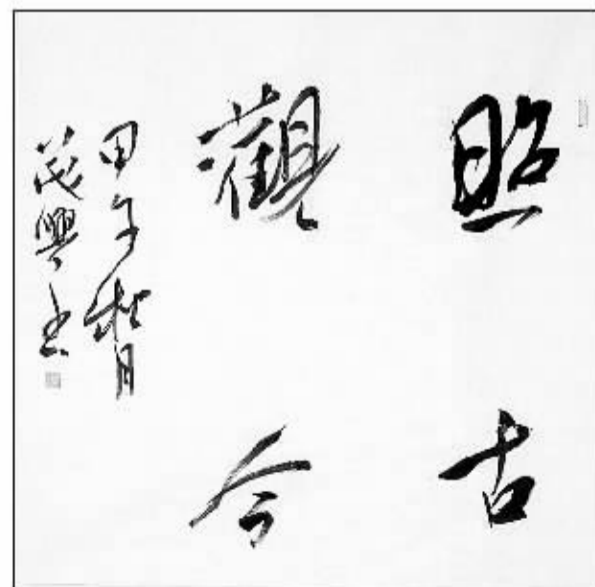 照古
觀今
甲午秋月
茂興書